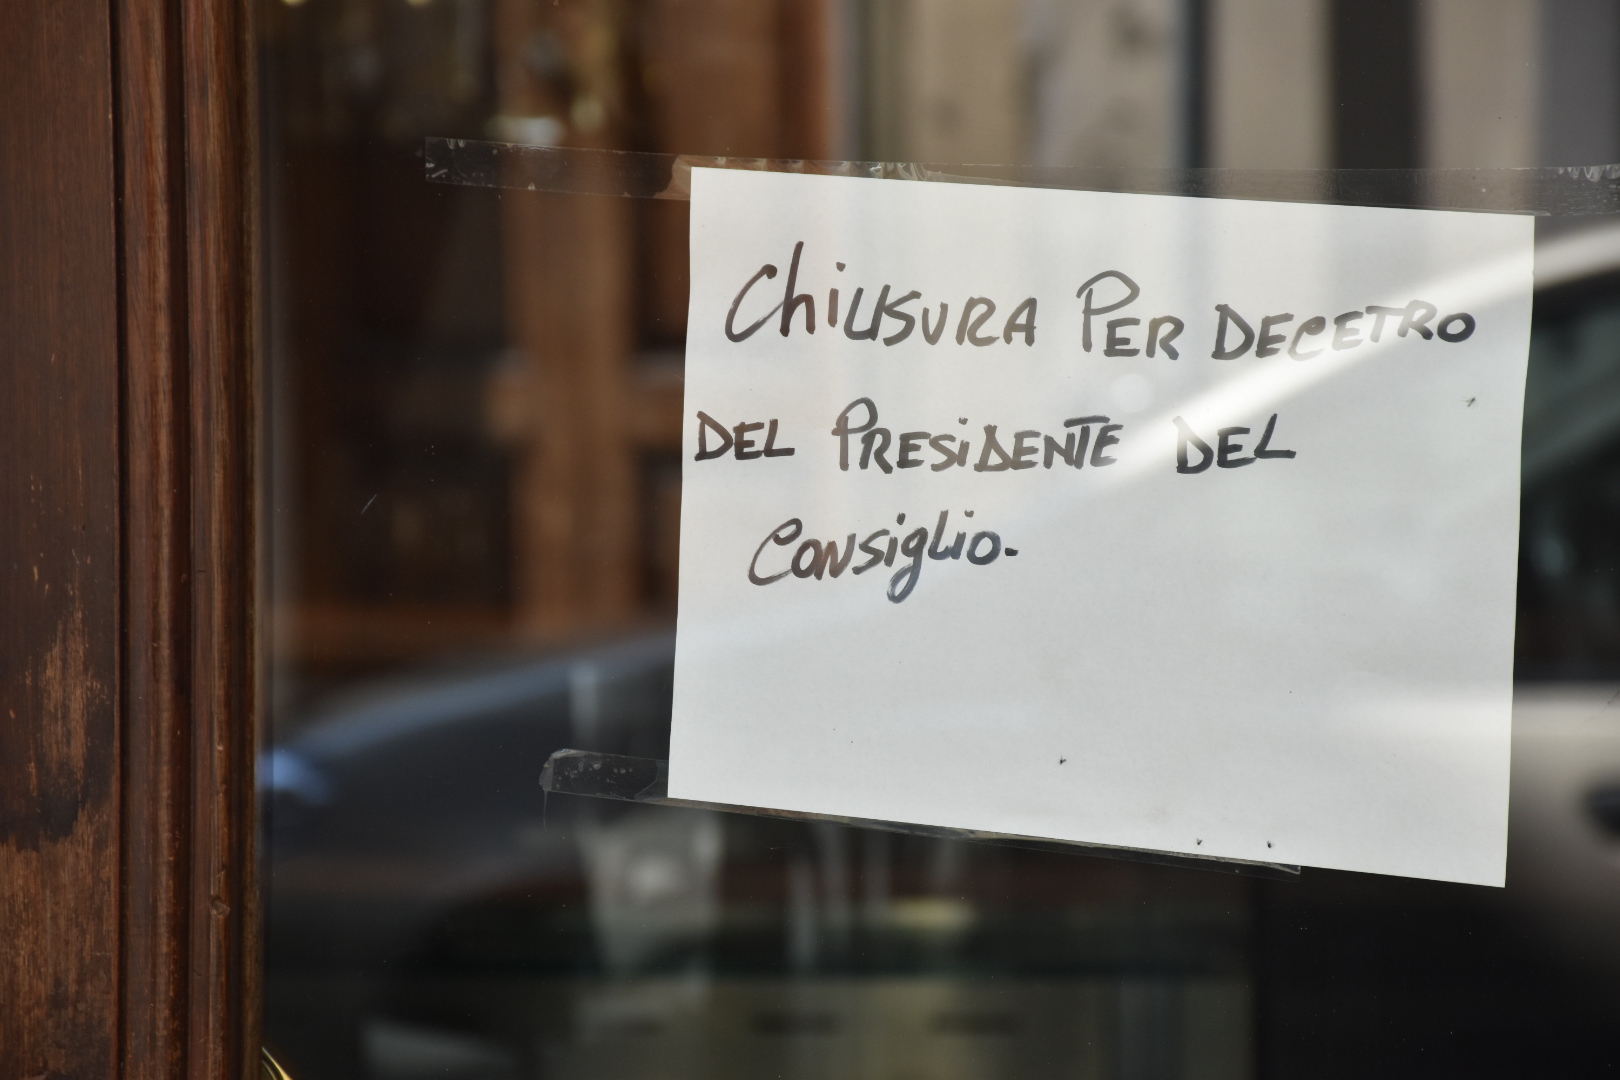 Chiusura Per Decetro
del Presidente del
Consiglio.